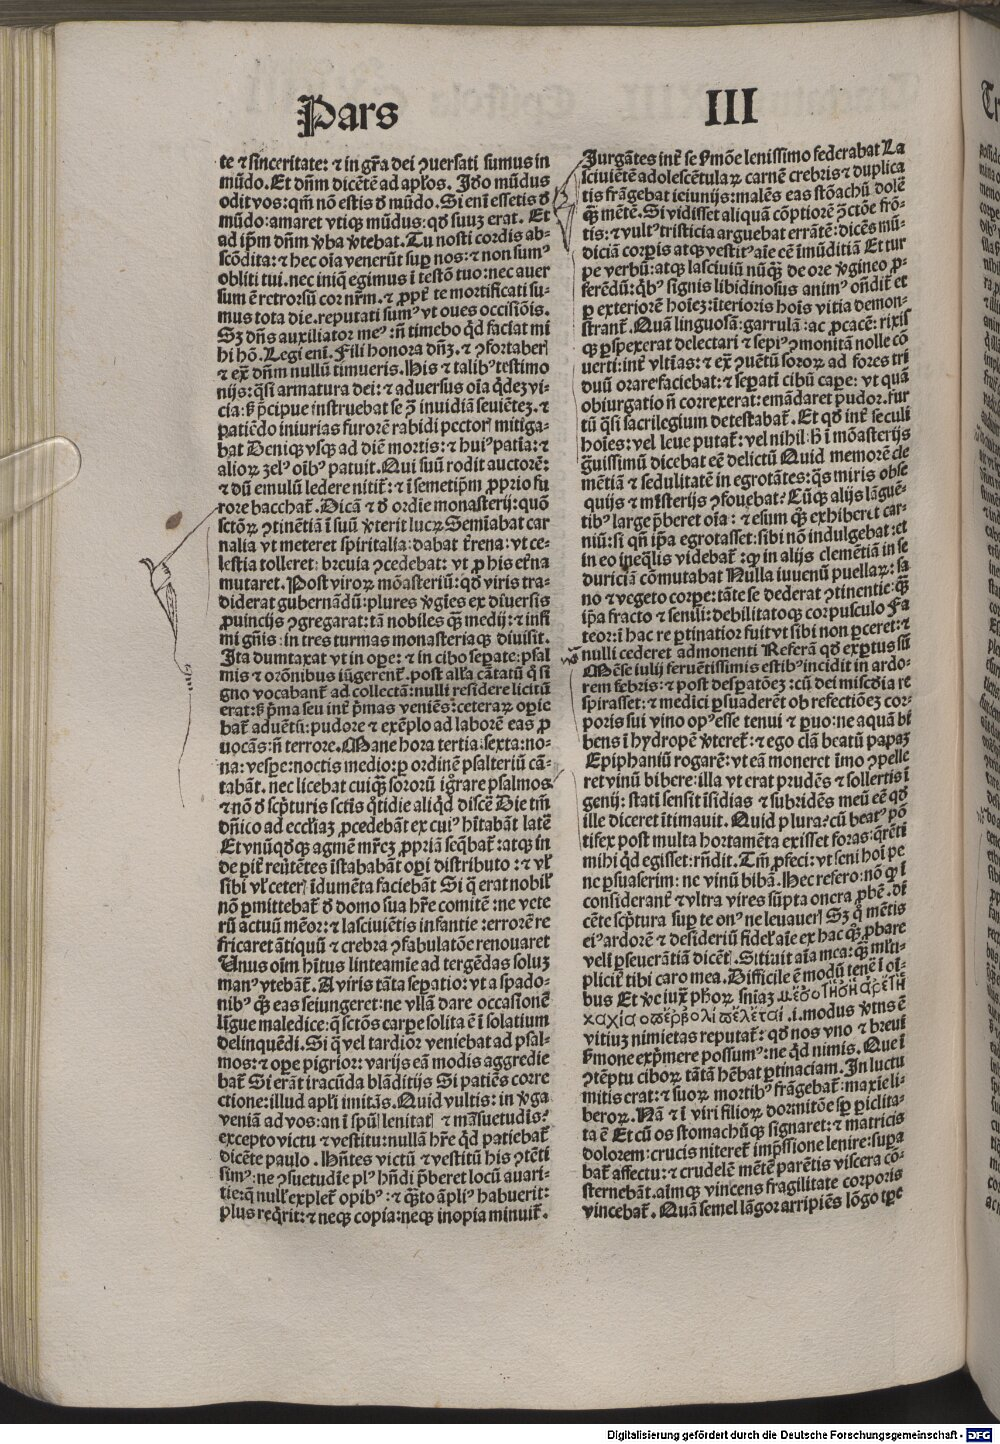 Pars III
te ⁊ sinceritate: ⁊ in gr̃a dei ꝯuersati sumus in
mũdo. Et dñm dicẽtẽ ad apl'os. Id̕o mũdus
odit vos: qm̃ nõ estis d̕ mũdo. Si eni essetis d̕
mũdo: amaret vtiqꝫ mũdus: qd̕ suuꝫ erat. Et
ad ip̃m dñm v̕ba v̕tebat. Tu nosti cordis ab-
scõdita: ⁊ hec oĩa venerũt suꝑ nos: ⁊ non sumꝰ
obliti tui. nec iniq̃ egimus ĩ testõ tuo: nec auer
sum ẽ retrorsũ cor nr̃m. ⁊ ꝓpt̕ te mortificati su-
mus tota die. reputati sumꝰ vt oues occisiõis.
Sꝫ dñs auxiliator meꝰ: ñ timebo qd̕ faciat mi
hi hõ. Legi eni. Fili honora dñꝫ. ⁊ ꝯfortaberꝭ
⁊ ex̃ dñm nullũ timueris. His ⁊ talibꝰ testimo
nijs: q̃si armatura dei: ⁊ aduersus oĩa qd̕eꝫ vi-
cia: s̕ p̃cipue instruebat se ꝯ̃ inuidiã seuiẽteꝫ. ⁊
patiẽdo iniurias furorẽ rabidi pectorꝭ mitiga-
bat Deniqꝫ vsqꝫ ad diẽ mortis: ⁊ huiꝰ patĩa: ⁊
alioꝝ zelꝰ oĩbꝰ patuit. Qui suũ rodit auctorẽ:
⁊ dũ emulũ ledere nitit̕: ⁊ ĩ semetip̃m ꝓprio fu
rore bacchat̕. Dicã ⁊ d̕ ordĩe monasterij: quõ
sctõꝝ ꝯtinẽtiã ĩ suũ v̕terit lucꝝ Semĩabat car
nalia vt meteret spiritalia: dabat t̕rena: vt ce-
lestia tolleret: breuia ꝯcedebat: vt ꝓ his et̕na
mutaret. Post viroꝝ mõasteriũ: qd̕ viris tra-
diderat gubernãdũ: plures v̕gĩes ex diuersis
ꝓuincijs ꝯgregarat: tã nobiles qꝫ̃ medij: ⁊ infi
mi gñis: in tres turmas monasteriaqꝫ diuisit.
Ita dumtaxat vt in oꝑe: ⁊ in cibo seꝑate: psal
mis ⁊ orõnibus iũgerent̕. post all'a cãtatũ q̃ si
gno vocabant̕ ad collectã: nulli residere licitũ
erat: s̕ p̃ma seu int̕ p̃mas veniẽs: ceteraꝝ opie
bat̕ aduẽtũ: pudore ⁊ exẽplo ad laborẽ eas ꝓ
uocãs: ñ terrore. Mane hora tertia: sexta: no-
na: vesꝑe: noctis medio: ꝑ ordinẽ psalteriũ cã-
tabãt. nec licebat cuiqꝫ̃ sororũ ig̃rare psalmos
⁊ nõ d̕ scp̃turis sctĩs q̃tidie aliqd̕ discẽ Die tm̃
dñico ad eccl'iaꝫ ꝓcedebãt ex cuiꝰ hĩtabãt latẽ
Et vnũqd̕qꝫ agmẽ mr̃eꝫ ꝓpriã seq̃bat̕: atqꝫ in
de ꝑit̕ reũtẽtes ĩstababãt oꝑi distributo: ⁊ vl'
sibi vl' ceterꝭ ĩdumẽta faciebãt Si q̃ erat nobil'
nõ ꝑmittebat̕ d̕ domo sua hr̃e comitẽ: ne vete
rũ actuũ mẽor: ⁊ lasciuiẽtis infantie: errorẽ re
fricaret ãtiquũ ⁊ crebra ꝯfabulatõe renouaret
Vnus oĩm hĩtus linteamĩe ad tergẽdas soluꝫ
manꝰ vtebãt̕. A viris tãta seꝑatio: vt a spado-
nibꝰ qꝫ̃ eas seiungeret: ne vllã dare occasionẽ
lĩgue maledice: q̃ sctõs carꝑe solita ẽ ĩ solatium
delinquẽdi. Si q̃ vel tardior veniebat ad psal-
mos: ⁊ oꝑe pigrior: varijs eã modis aggredie
bat̕ Si erãt iracũda blãditijs Si patiẽs corre
ctione: illud apl'i imitãs. Quid vultis: in v̕ga
veniã ad vos: an ĩ spũ lenitatꝭ ⁊ mãsuetudĩs:
excepto victu ⁊ vestitu: nullã hr̃e qd̕ patiebat̕
dicẽte paulo. Hñtes victũ ⁊ vestitũ his ꝯtẽti
simꝰ: ne ꝯsuetudĩe plꝰ hñdi p̃beret locũ auari-
tie: q̃ null' explet̕ opibꝰ: ⁊ qꝫ̃to ãpliꝰ habuerit:
plus req̃rit: ⁊ neqꝫ copia: neqꝫ inopia minuit̕.
Jurgãtes int̕ se s̕mõe lenissimo federabat La
sciuiẽtẽ adolescẽtulaꝝ carnẽ crebris ⁊ duplica
tis frãgebat ieiunijs: malẽs eas stõachũ dolẽ
qꝫ̃ mẽtẽ. Si vidisset aliquã cõptiorẽ ꝯ̃ctõe frõ-
tis: ⁊ vultꝰ tristicia arguebat errãtẽ: dicẽs mũ-
diciã corꝑis atqꝫ vestitꝰ aĩe eẽ ĩmũditiã Et tur
pe verbũ: atqꝫ lasciuiũ nũqꝫ̃ de ore v̕gineo ꝓ-
ferẽdũ: qb̕ꝰ signis libidinosus animꝰ oñdit̕ et
ꝑ exteriorẽ hoĩeꝫ: ĩterioris hoĩs vitia demon-
strant̕. Quã linguosã: garrulã: ac ꝓcacẽ: rixis
qꝫ ꝑspexerat delectari ⁊ sepiꝰ ꝯmonitã nolle cõ
uerti: int̕ vltĩas: ⁊ ex̃ ꝯuẽtũ soroꝝ ad fores tri
duũ orare faciebat: ⁊ seꝑatĩ cibũ caꝑe: vt quã
obiurgatio ñ correxerat: emãdaret pudor. fur
tũ q̃si sacrilegium detestabat̕. Et qd̕ int̕ seculi
hoĩes: vel leue putat̕: vel nihil: h̕ ĩ mõasterijs
g̃uissimũ dicebat eẽ delictũ Quid memorẽ cle
mẽtiã ⁊ sedulitatẽ in egrotãtes: q̃s miris obse
quijs ⁊ mĩsterijs ꝯfouebat: Cũqꝫ alijs lãguẽ-
tibꝰ large p̃beret oĩa: ⁊ esum qꝫ̃ exhiberet car-
niũ: si qñ ip̃a egrotasset: sibi nõ indulgebat: et
in eo ineq̃lis videbat̕: qꝫ in alijs clemẽtiã in se
duriciã cõmutabat Nulla iuuenũ puellaꝝ: sa
no ⁊ vegeto corꝑe: tãte se dederat ꝯtinentie: qꝫ̃
ip̃a fracto ⁊ senili: debilitatoqꝫ corpusculo Fa
teor: ĩ hac re ꝑtinatior fuit vt sibi non ꝑceret: ⁊
nulli cederet admonenti Referã qd̕ exꝑtus sũ
Mẽse iulij feruẽtissimis estibꝰ incidit in ardo-
rem febris: ⁊ post desꝑatõeꝫ: cũ dei miscd̕ia re
spirasset: ⁊ medici ꝑsuaderẽt ob refectiõeꝫ cor-
poris sui vino opꝰ esse tenui ⁊ ꝑuo: ne aquã bĩ
bens ĩ hydropẽ v̕teret̕: ⁊ ego clã beatũ papaꝫ
Epiphaniũ rogarẽ: vt eã moneret ĩmo ꝯpelle
ret vinũ bibere: illa vt erat prudẽs ⁊ sollertis ĩ
genij: statĩ sensit ĩsidias ⁊ subridẽs meũ eẽ qd̕
ille diceret ĩtimauit. Quid plura: cũ beatꝰ põ
tifex post multa hortamẽta exisset foras: q̃rẽti
mihi qd̕ egisset: rñdit. Tm̃ ꝓfeci: vt seni hoĩ pe
ne ꝑsuaserim: ne vinũ bibã. Hec refero: nõ qꝫ ĩ
considerant̕ ⁊ vltra vires sũpta onera ꝓbẽ. di
cẽte scp̃tura suꝑ te onꝰ ne leuauerꝭ Sꝫ q̃ mẽtis
eiꝰ ardorẽ ⁊ desideriũ fidel' aĩe ex hac qꝫ̃ ꝓbare
veli ꝑseuerãtiã dicẽt. Sitiuit aĩa mea: qꝫ̃ ml'ti-
plicit̕ tibi caro mea. Difficile ẽ modũ tenẽ ĩ oĩ-
bus Et v̕e iux̃ ph̕oꝝ sñiaꝫ
.i. modus v̕tus ẽ
vitiuꝫ nimietas reputat̕: qd̕ nos vno ⁊ breui
s̕mone exp̃mere possumꝰ: ne qd̕ nimis. Que ĩ
ꝯtẽptu ciboꝝ tãtã hẽbat ꝑtinaciam. In luctu
mitis erat: ⁊ suoꝝ mortibꝰ frãgebat̕: maxĩe li-
beroꝝ. Nã ⁊ ĩ viri filioꝝ dormitõe sꝑ ꝑiclita-
ta ẽ Et cũ os stomachũqꝫ signaret: ⁊ matricis
dolorem: crucis niteret̕ imp̃ssione lenire: suꝑa
bat̕ affectu: ⁊ crudelẽ mẽtẽ parẽtis viscera cõ-
sternebãt. aĩmqꝫ vincens fragilitate corporis
vincebat̕. Quã semel lãgor arripiẽs lõgo tꝑe
Digitalisierung gefördert durch die Deutsche Forschungsgemeinschaft - DFG